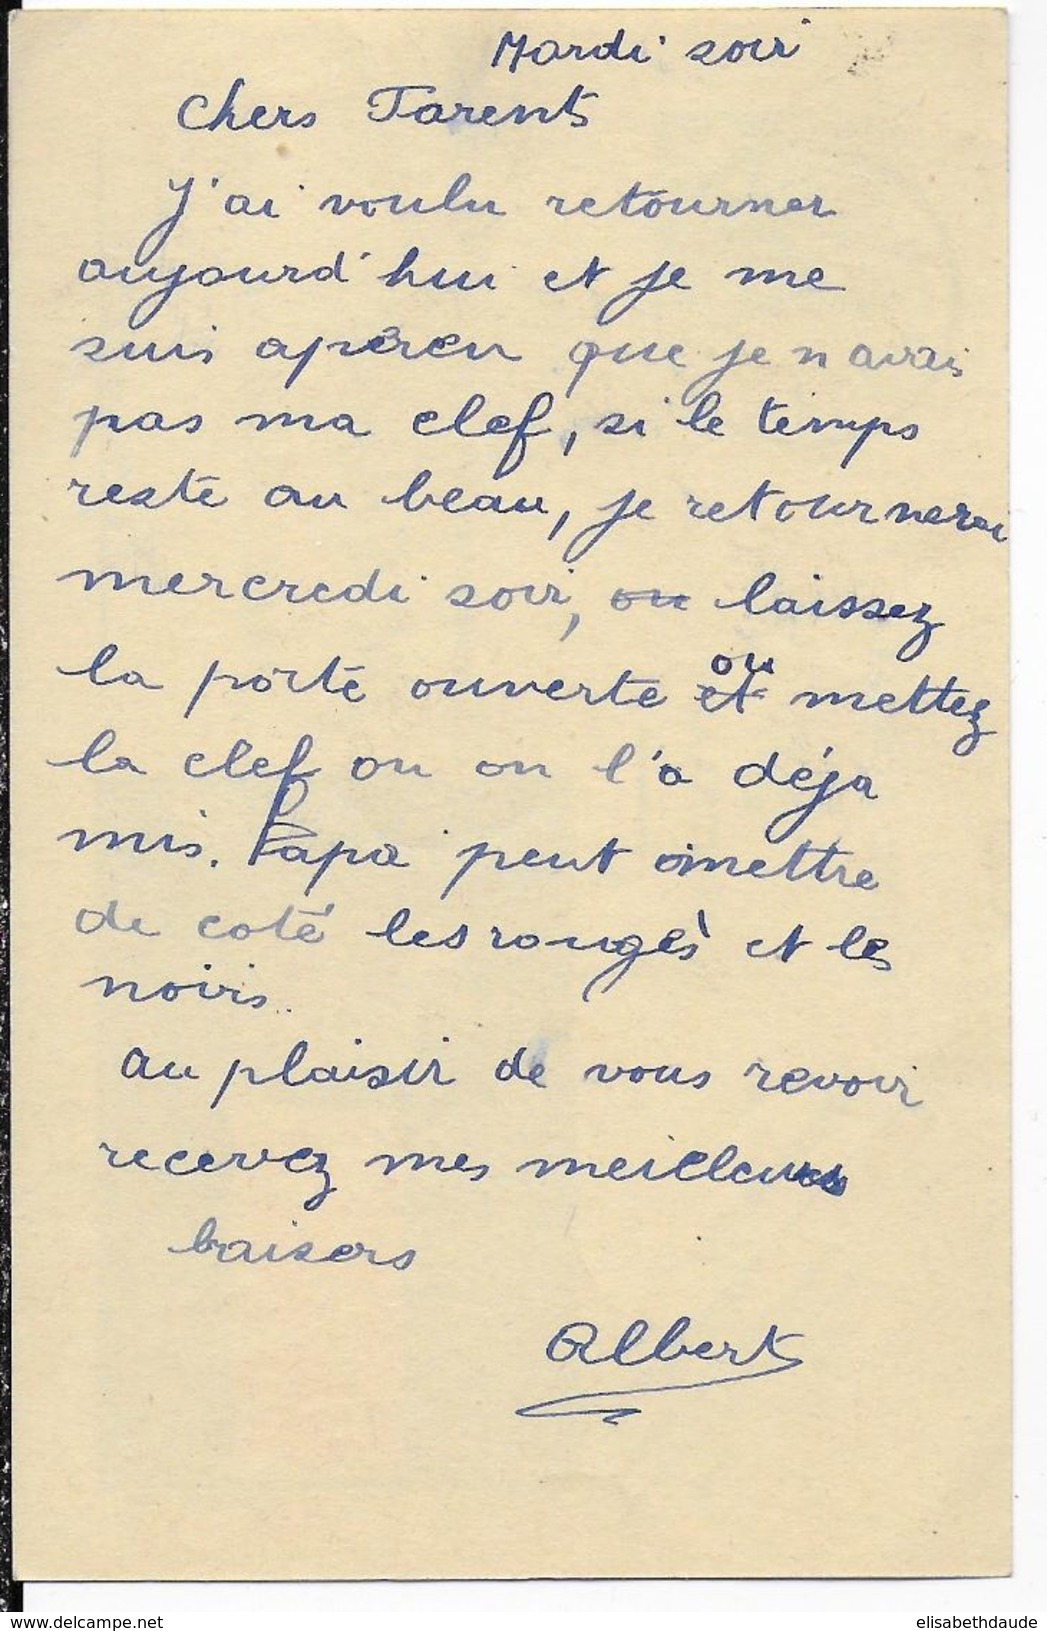 Mardi soir
Chers Parents
J'ai voulu retourner
aujourd'hui et je me
suis aperçu que je n'avais
pas ma clef, si le temps
reste au beau, je retournerai
mercredi soir, ou laissez
la porte ouverte et ou mettez
la clef ou on l'a déja
mis. Papa peut mettre
de coté les rouges et les
noirs.
Au plaisir de vous revoir
recevez mes meilleurs
baisers
Albert
www.delcampe.net
elisabethdaude